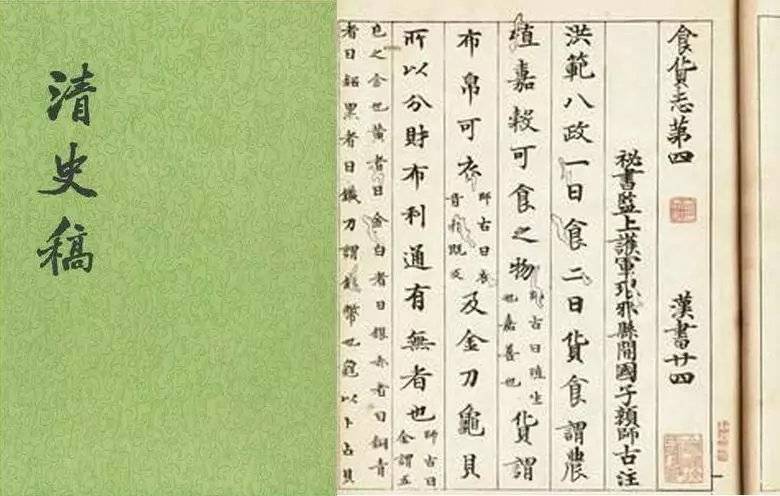 清史稿
食貨志第四 漢書廿四
秘書監上護軍琅邪縣開國子顏師古注
洪範八政一曰食二曰貨食謂農
殖嘉穀可食之物師古曰殖生也嘉善也貨謂
布帛可衣師古曰衣音於既反及金刀龜貝
所以分財布利通有無者也師古曰金謂五
色之金也黃者曰金白者曰銀赤者曰銅青
者曰鉛黑者曰鐵刀謂錢幣也龜以卜占貝